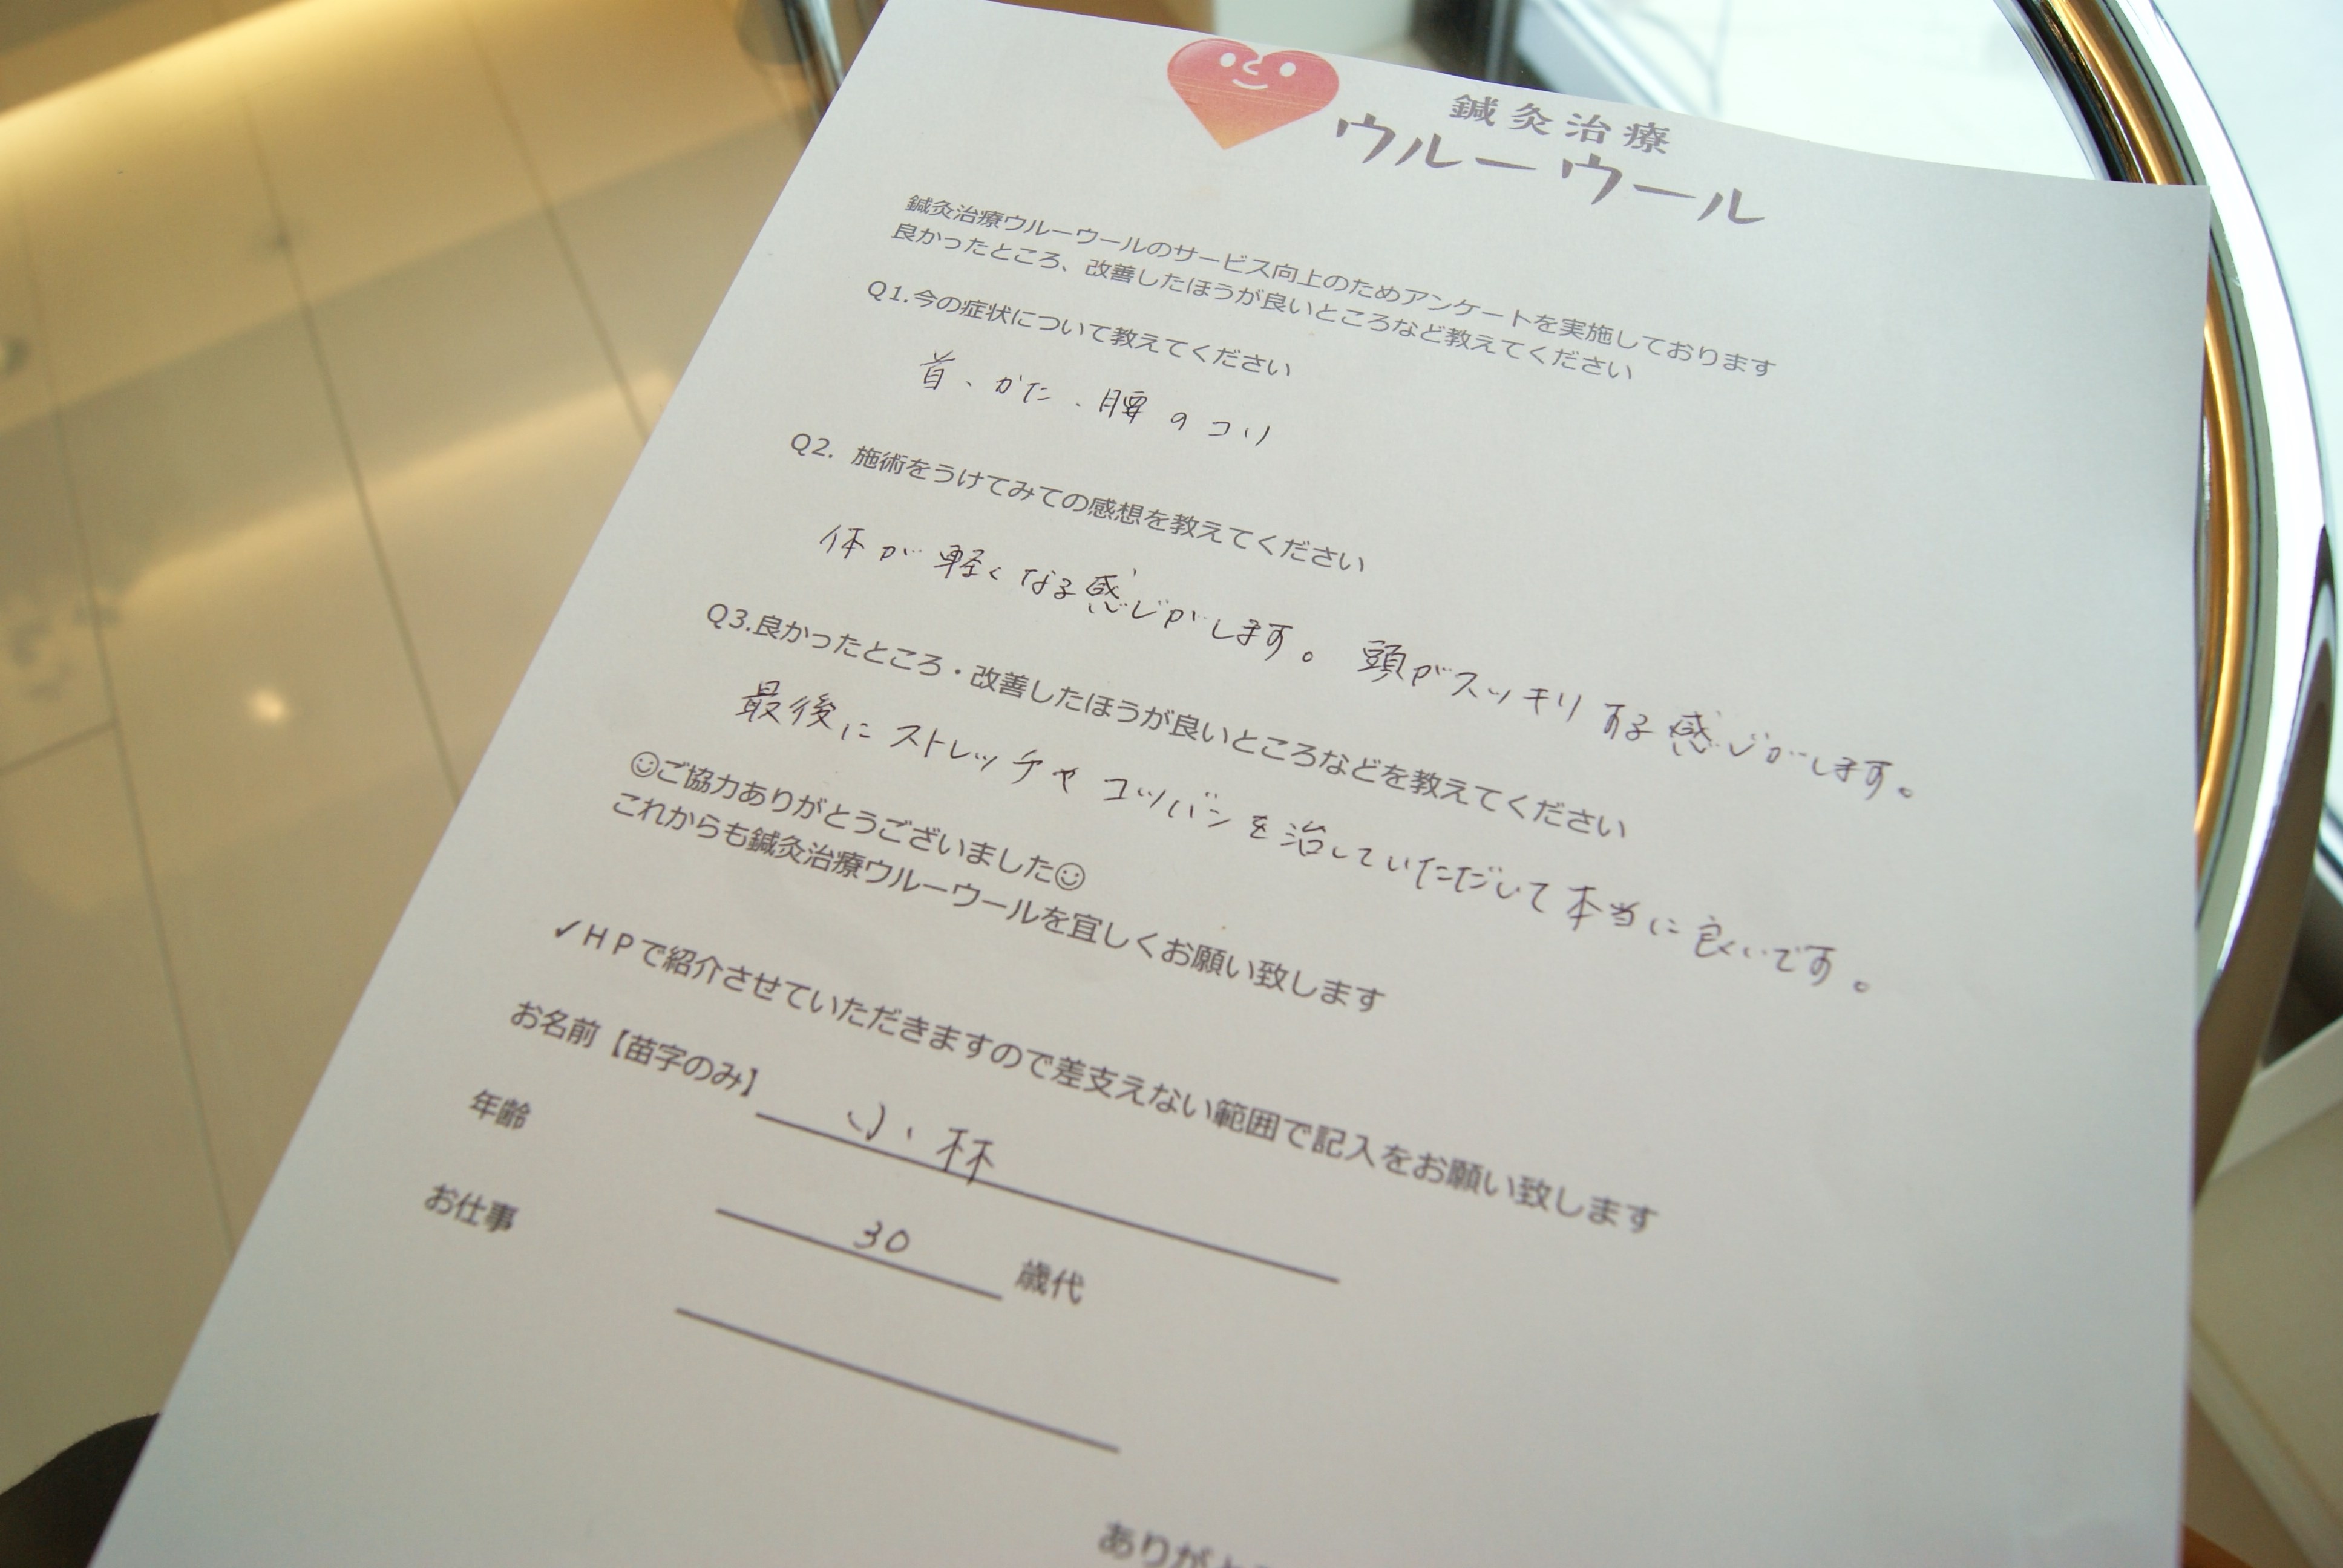 鍼灸治療
ウルーウール
鍼灸治療ウルーウールのサービス向上のためアンケートを実施しております
良かったところ、改善したほうが良いところなど教えてください
Q1.今の症状について教えてください
首、かた、腰のコリ
Q2. 施術をうけてみての感想を教えてください
体が軽くなる感じがします。頭がスッキリする感じがします。
Q3.良かったところ・改善したほうが良いところなどを教えてください
最後にストレッチやコツバンを治していただいて本当に良いです。
☺ご協力ありがとうございました☺
これからも鍼灸治療ウルーウールを宜しくお願い致します
✓HPで紹介させていただきますので差支えない範囲で記入をお願い致します
お名前【苗字のみ】 小林
年齢 30 歳代
お仕事
ありがと